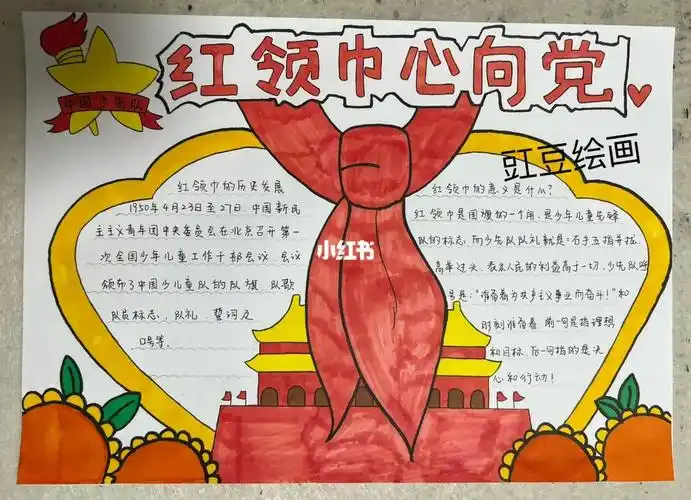 红领巾心向党
中国少先队
豇豆绘画
小红书
红领巾的历史发展
1950年4月23日至27日,中国新民
主主义青年团中央委员会在北京召开第一
次全国少年儿童工作干部会议,会议
颁布了中国少儿童队的队旗、队歌
队员标志、队礼、誓词及
口号等。
红领巾的意义是什么?
红领巾是国旗的一个角,是少年儿童先锋
队的标志,而少先队队礼就是:右手五指并拢,
高举过头,表示人民的利益高于一切,少先队呼
号是:“准备着为共产主义事业而奋斗!”和
时刻准备着,前一句是指理想
和目标,后一句指的是决
心和行动!